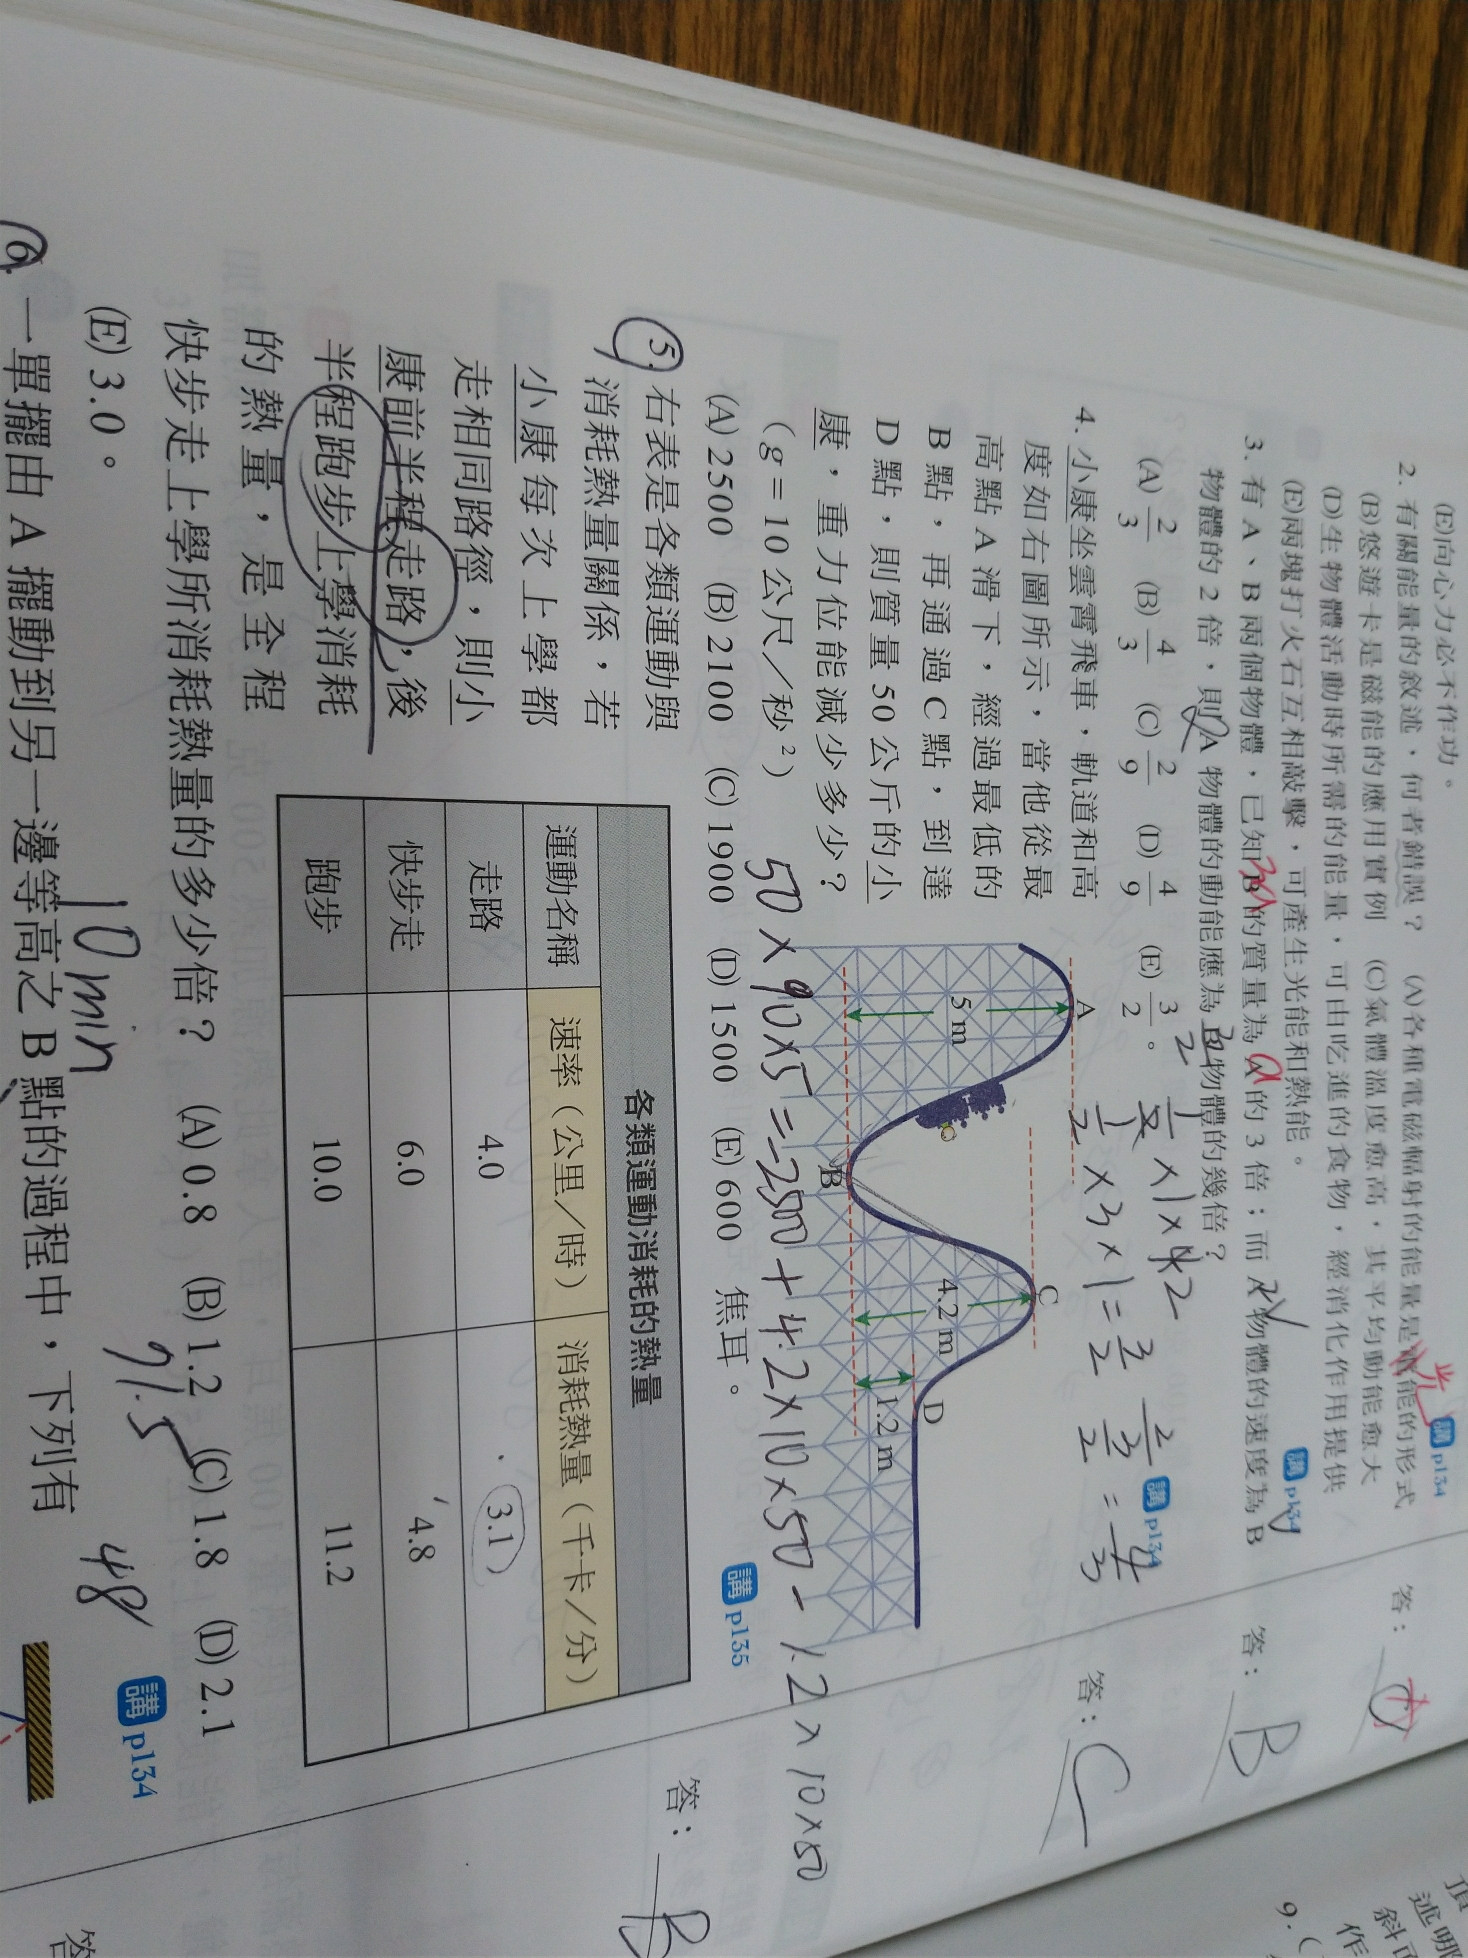 (E)向心力必不作功。
2. 有關能量的敘述，何者錯誤？ (A)各種電磁輻射的能量是能的形式
光
講 p134
(B)悠遊卡是磁能的應用實例 (C)氣體溫度愈高，其平均動能愈大
(D)生物體活動時所需的能量，可由吃進的食物，經消化作用提供
(E)兩塊打火石互相敲擊，可產生光能和熱能。
答：
3. 有 A、B 兩個物體，已知 B 的質量為 的 3 倍；而 物體的速度為 B
講 p134
物體的 2 倍，則 A 物體的動能應為 物體的幾倍？
(A) 2/3 (B) 4/3 (C) 2/9 (D) 4/9 (E) 3/2。
講 p134
答：B
3/2
4. 小康坐雲霄飛車，軌道和高
度如右圖所示，當他從最
高點 A 滑下，經過最低的
B 點，再通過 C 點，到達
D 點，則質量 50 公斤的小
康，重力位能減少多少？
(g = 10 公尺／秒²)
A
5 m
B
C
4.2 m
D
1.2 m
答：C
50 × 10×5 = 2500 + 4.2×10×50 - 1.2×10×50
(A) 2500 (B) 2100 (C) 1900 (D) 1500 (E) 600 焦耳。
講 p135
5. 右表是各類運動與
消耗熱量關係，若
小康每次上學都
走相同路徑，則小
康前半程走路，後
半程跑步上學消耗
的熱量，是全程
快步走上學所消耗熱量的多少倍？ (A) 0.8 (B) 1.2 (C) 1.8 (D) 2.1
(E) 3.0。
講 p134
答：B
各類運動消耗的熱量
運動名稱 速率（公里／時） 消耗熱量（千卡／分）
走路 4.0 3.1
快步走 6.0 4.8
跑步 10.0 11.2
10 min
71.5
48
6. 一單擺由 A 擺動到另一邊等高之 B 點的過程中，下列有
答
頂
斜
作
9. (